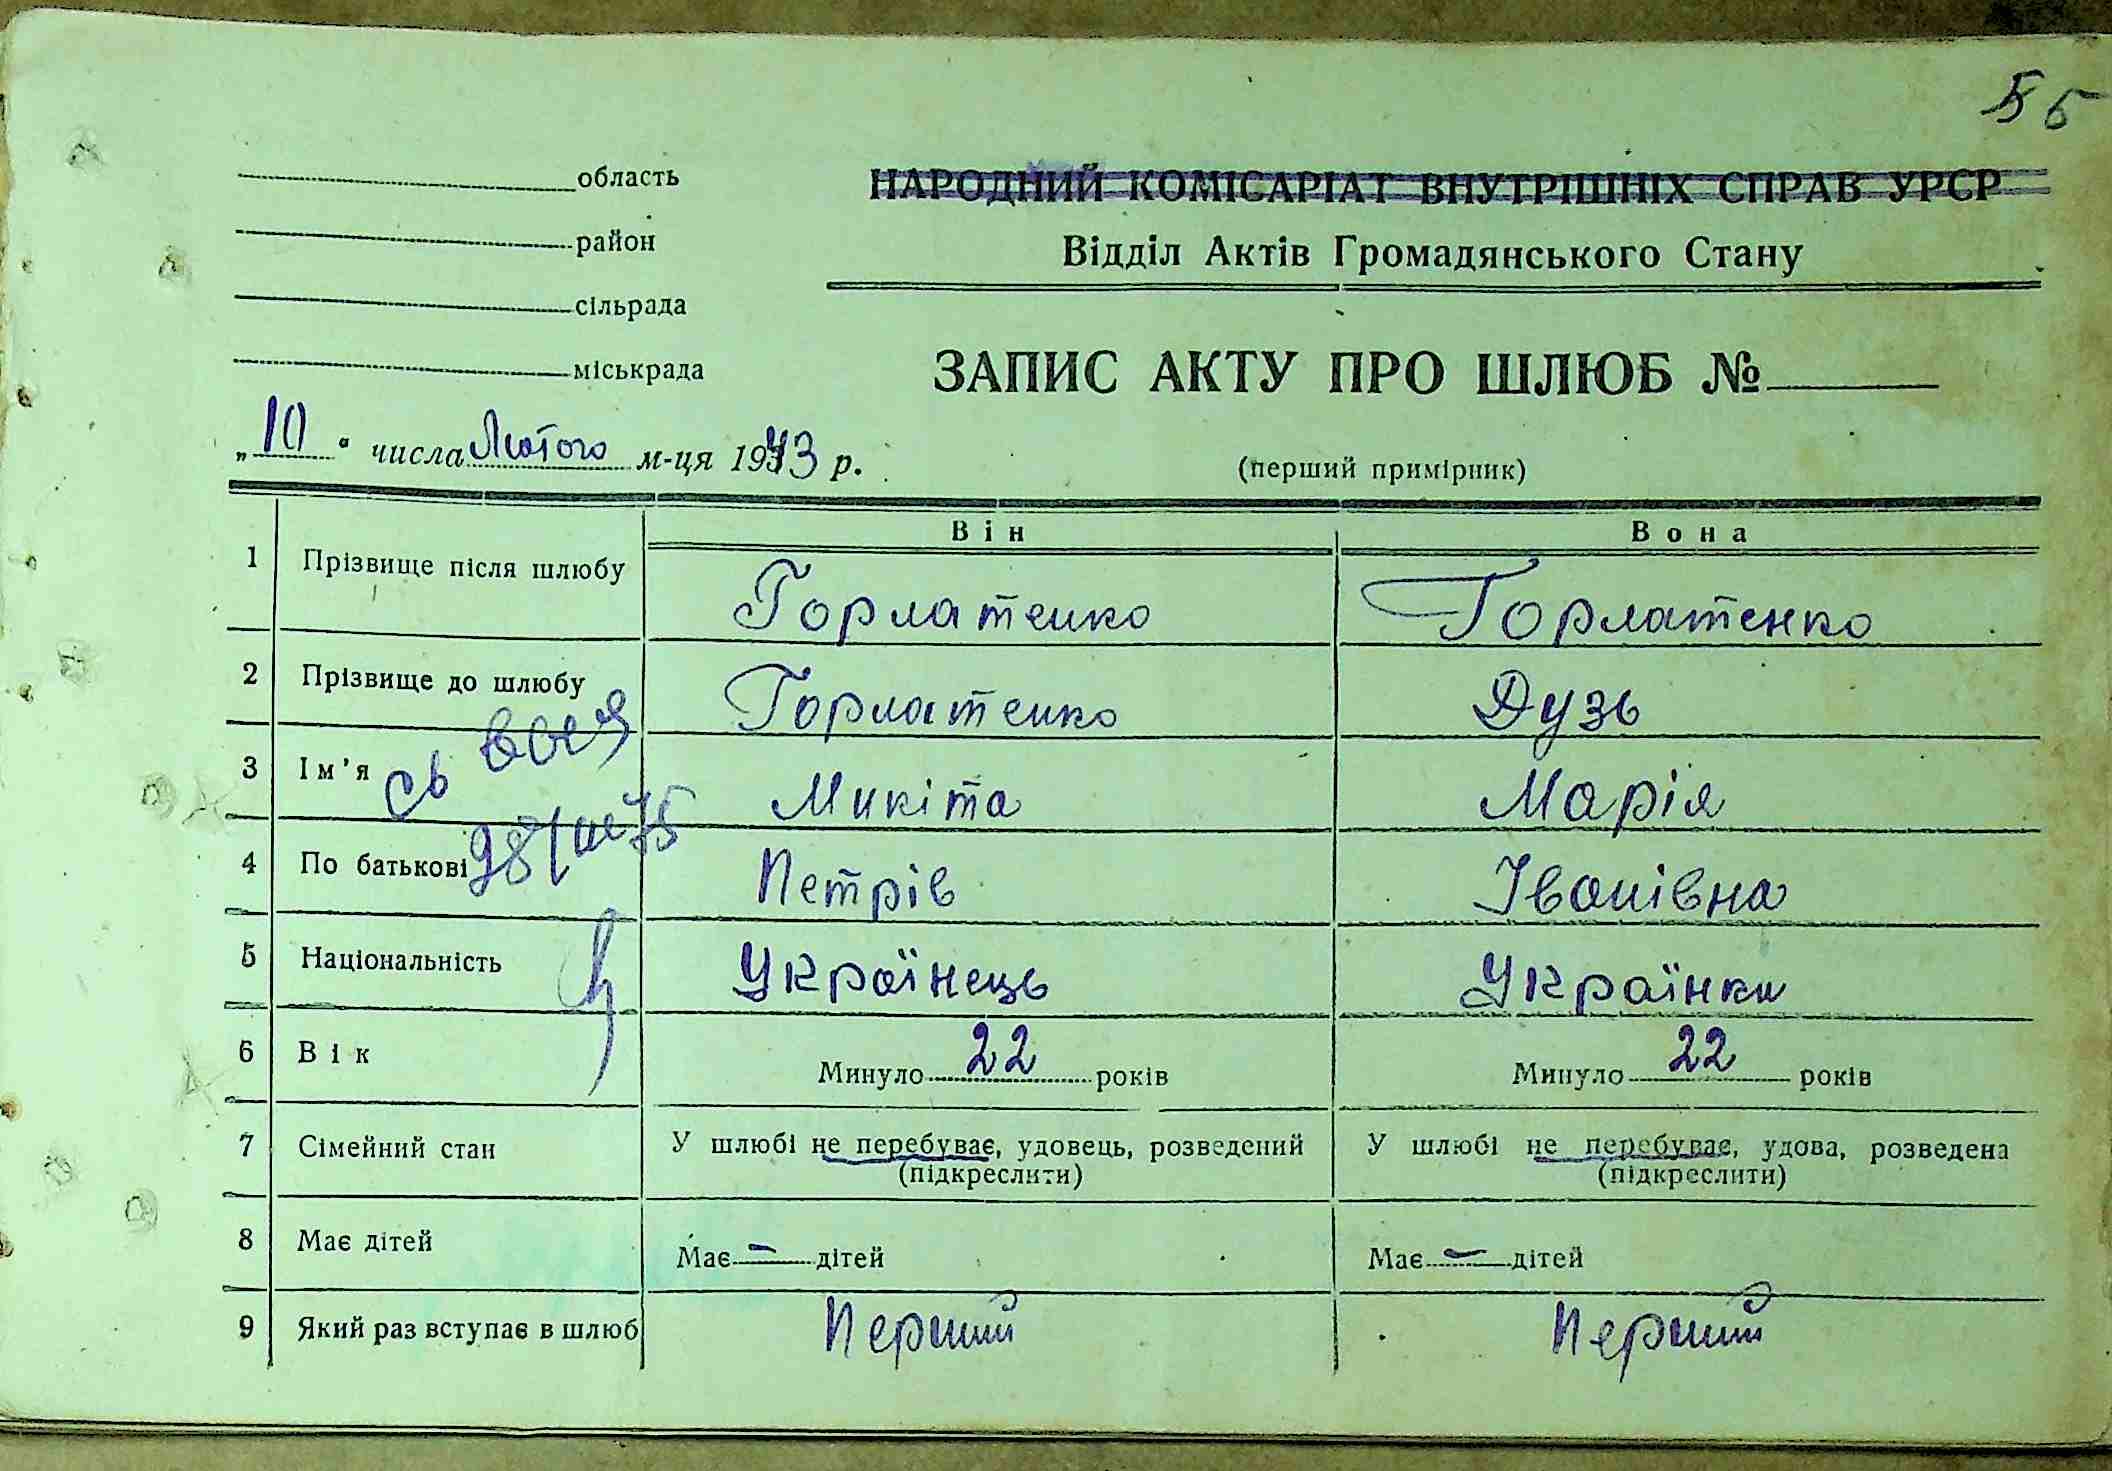 56
область
НАРОДНИЙ КОМІСАРІАТ ВНУТРІШНІХ СПРАВ УРСР
район
Відділ Актів Громадянського Стану
сільрада
міськрада
ЗАПИС АКТУ ПРО ШЛЮБ №
„10“ числа Лютого м-ця 1943 р.
(перший примірник)
Він Вона
1 Прізвище після шлюбу Горлатенко Горлатенко
2 Прізвище до шлюбу Горлатенко Дузь
3 Ім'я Микіта Марія
4 По батькові Петрів Іванівна
28/III 75
5 Національність Українець Українки
6 Вік Минуло 22 років Минуло 22 років
7 Сімейний стан У шлюбі не перебуває, удовець, розведений У шлюбі не перебуває, удова, розведена
(підкреслити) (підкреслити)
8 Має дітей Має – дітей Має – дітей
9 Який раз вступає в шлюб Перший Перший